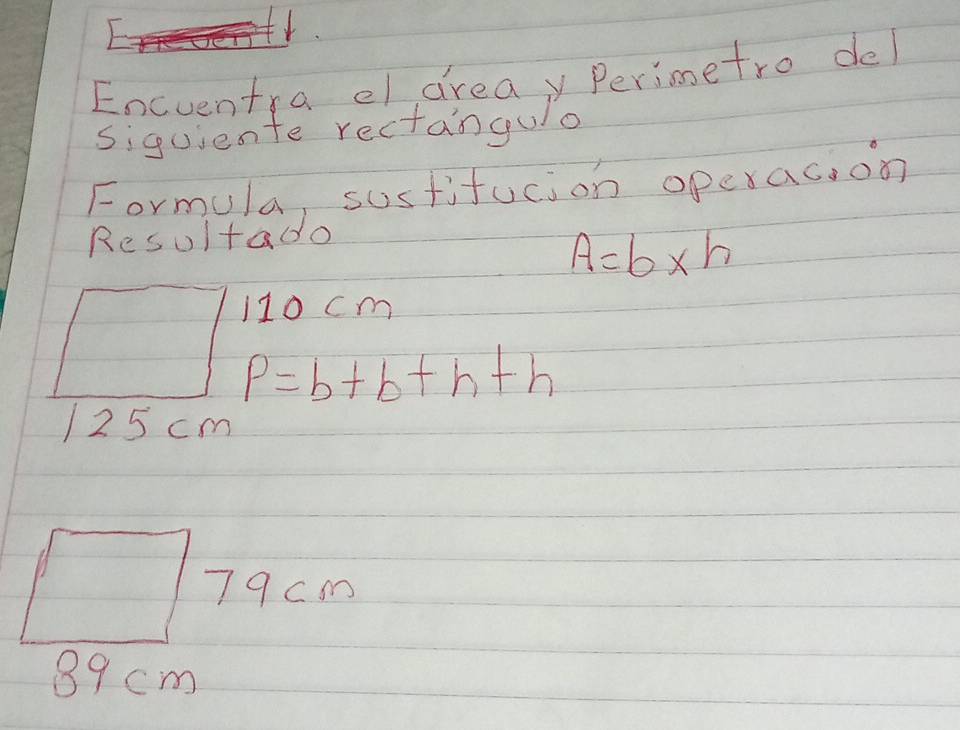 Encuentra el área y Perimetro del
siguiente rectángulo
Formula, sustitución operación
Resultado
A=b×h
110 cm
P=b+b+h+h
125 cm
79 cm
89 cm